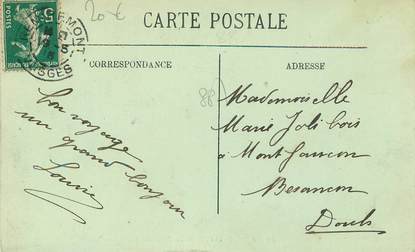 20€
CARTE POSTALE
CORRESPONDANCE
ADRESSE
5
POSTES
88
bon voyage
un grand bonjour
Louise
Mademoiselle
Marie Jolibois
à Montfaucon
Besançon
Doubs